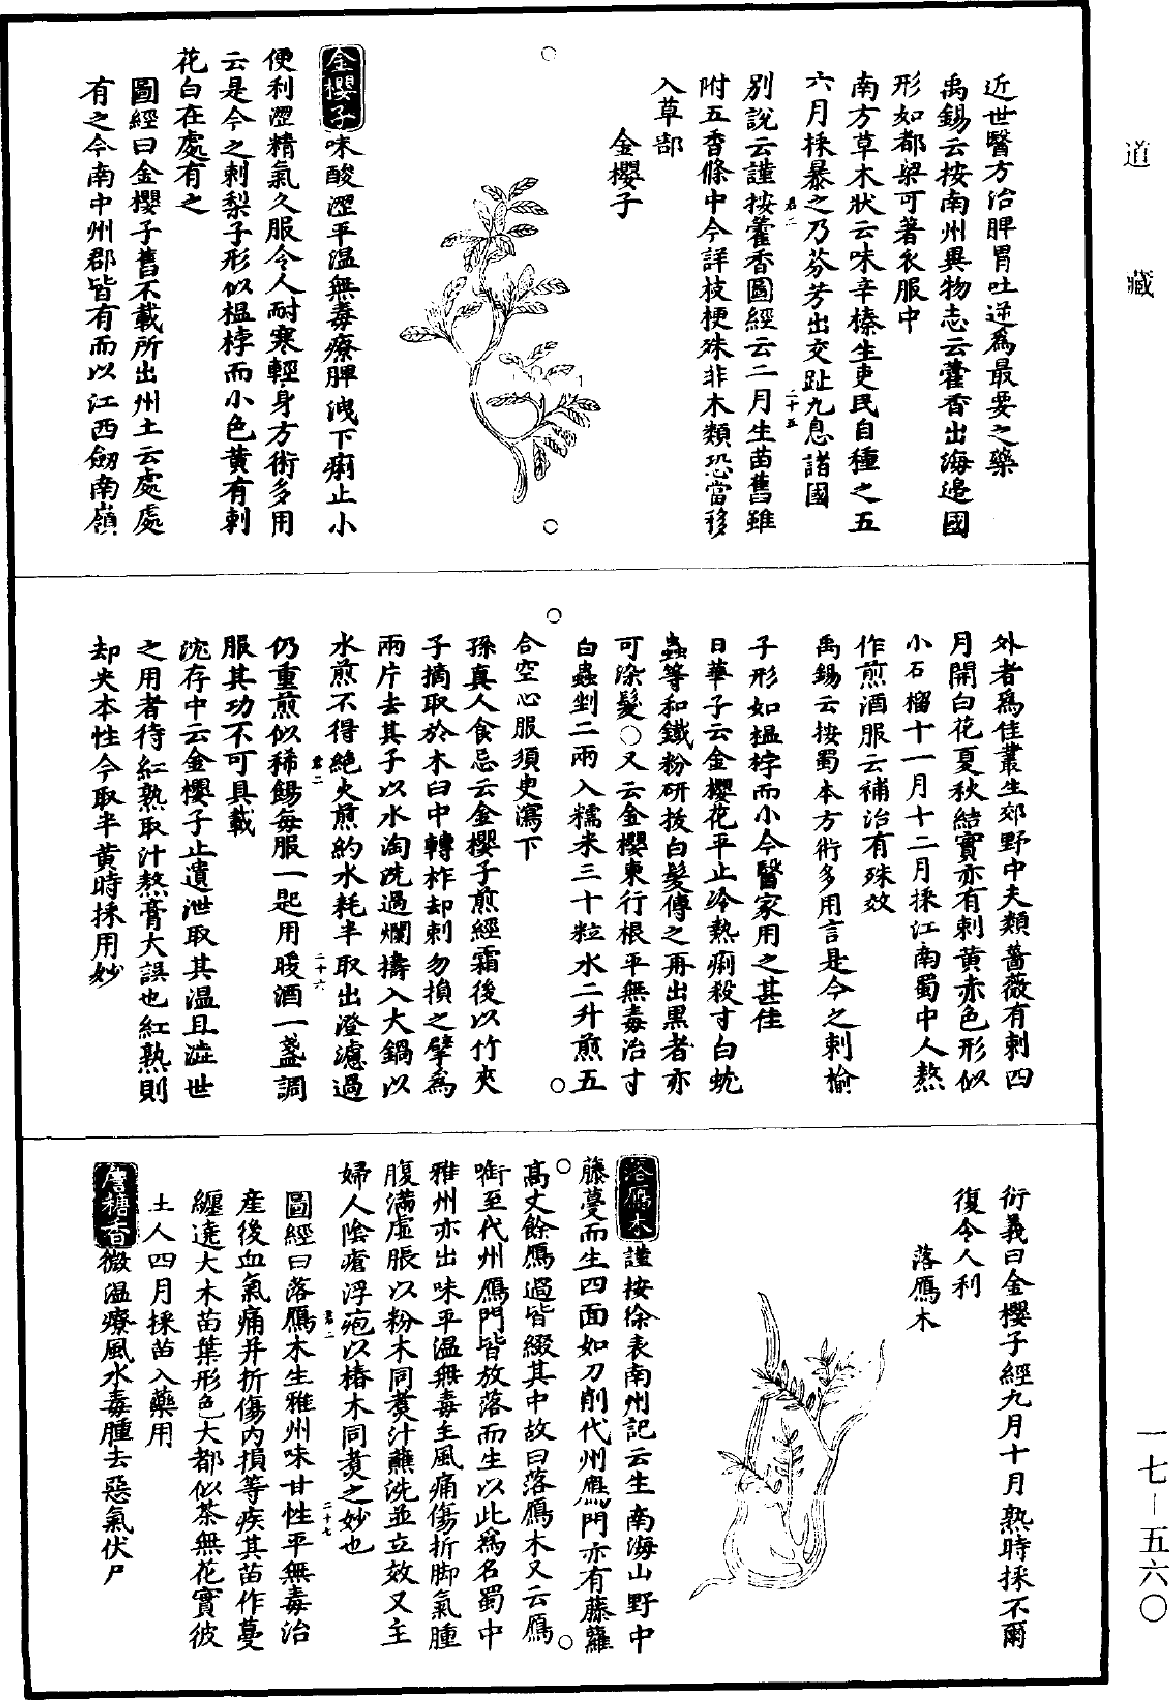 道藏
近世醫方治脾胃吐逆爲最要之藥
禹錫云按南州異物志云藿香出海邊國
形如都梁可著衣服中
南方草木狀云味辛榛生吏民自種之五
六月採暴之乃芬芳出交趾九息諸國
別說云謹按藿香圖經云二月生苗舊雖
附五香條中今詳枝梗殊非木類恐當移
入草部
金櫻子
金櫻子味酸澀平温無毒療脾洩下痢止小
便利澀精氣久服令人耐寒輕身方術多用
云是今之刺梨子形似榲桲而小色黄有刺
花白在處有之
圖經曰金櫻子舊不載所出州土云處處
有之今南中州郡皆有而以江西劒南嶺
二十五
外者爲佳叢生郊野中夫類薔薇有刺四
月開白花夏秋結實亦有刺黄赤色形似
小石榴十一月十二月採江南蜀中人熬
作煎酒服云補治有殊效
禹錫云按蜀本方術多用言是今之刺榆
子形如榲桲而小今醫家用之甚佳
日華子云金櫻花平止冷熱痢殺寸白蚘
蟲等和鐵粉研拔白髮傅之再出黒者亦
可染髮○又云金櫻東行根平無毒治寸
白蟲剉二兩入糯米三十粒水二升煎五
合空心服須史瀉下
孫真人食忌云金櫻子煎經霜後以竹夾
子摘取於木臼中轉柞却刺勿損之擘爲
兩片去其子以水淘洗過爛擣入大鍋以
水煎不得絶火煎約水耗半取出澄濾過
二十六
仍重煎似稀餳每服一匙用暖酒一盞調
服其功不可具載
沈存中云金櫻子止遺泄取其温且澁世
之用者待紅熟取汁熬膏大誤也紅熟則
却失本性今取半黄時採用妙
衍義曰金櫻子經九月十月熟時採不爾
復令人利
落鴈木
落鴈木謹按徐表南州記云生南海山野中
藤蔓而生四面如刀削代州鴈門亦有藤蘿
高丈餘鴈過皆綴其中故曰落鴈木又云鴈
㗸至代州鴈門皆放落而生以此爲名蜀中
雅州亦出味平温無毒主風痛傷折脚氣腫
腹滿虛脹以粉木同煑汁蘸洗並立效又主
婦人陰瘡浮疱以椿木同煑之妙也
二十七
圖經曰落鴈木生雅州味甘性平無毒治
産後血氣痛并折傷内損等疾其苗作蔓
纏遶大木苗葉形色大都似茶無花實彼
土人四月採苗入藥用
詹糖香微温療風水毒腫去惡氣伏尸
一七—五六〇